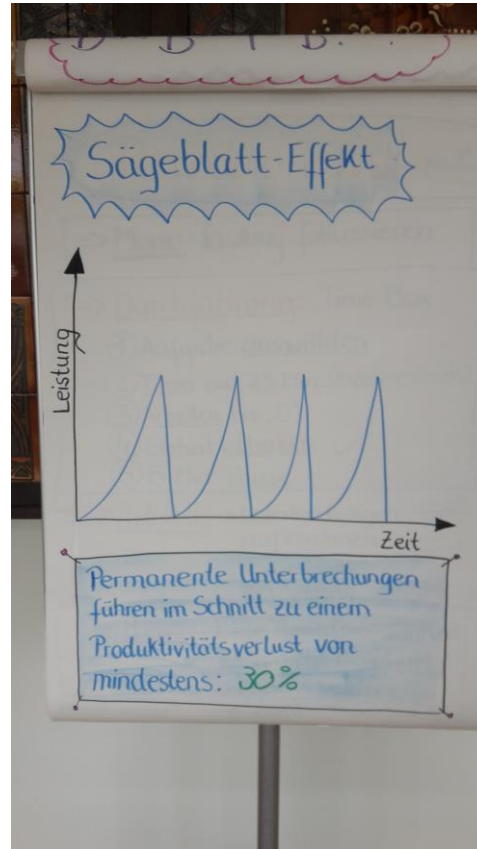 Sägeblatt-Effekt
Leistung
Zeit
Permanente Unterbrechungen
führen im Schnitt zu einem
Produktivitätsverlust von
mindestens: 30%